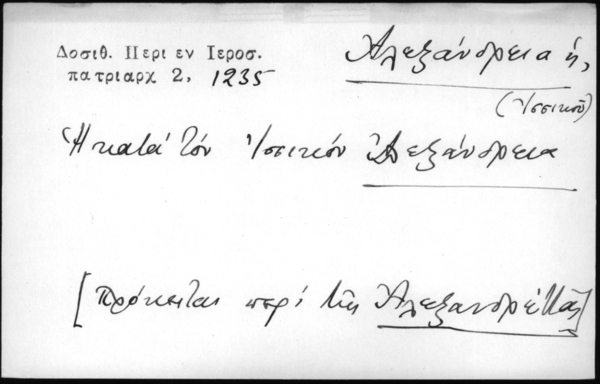 Δοσιθ. Περι εν Ιεροσ.
πατριαρχ 2, 1235
Ἀλεξάνδρεια ἡ,
(Ἰσσικοῦ)
Ἡ κατά τόν Ἰσσικόν Ἀλεξάνδρεια
[Πρόκειται περί τῆς Ἀλεξανδρέττας]